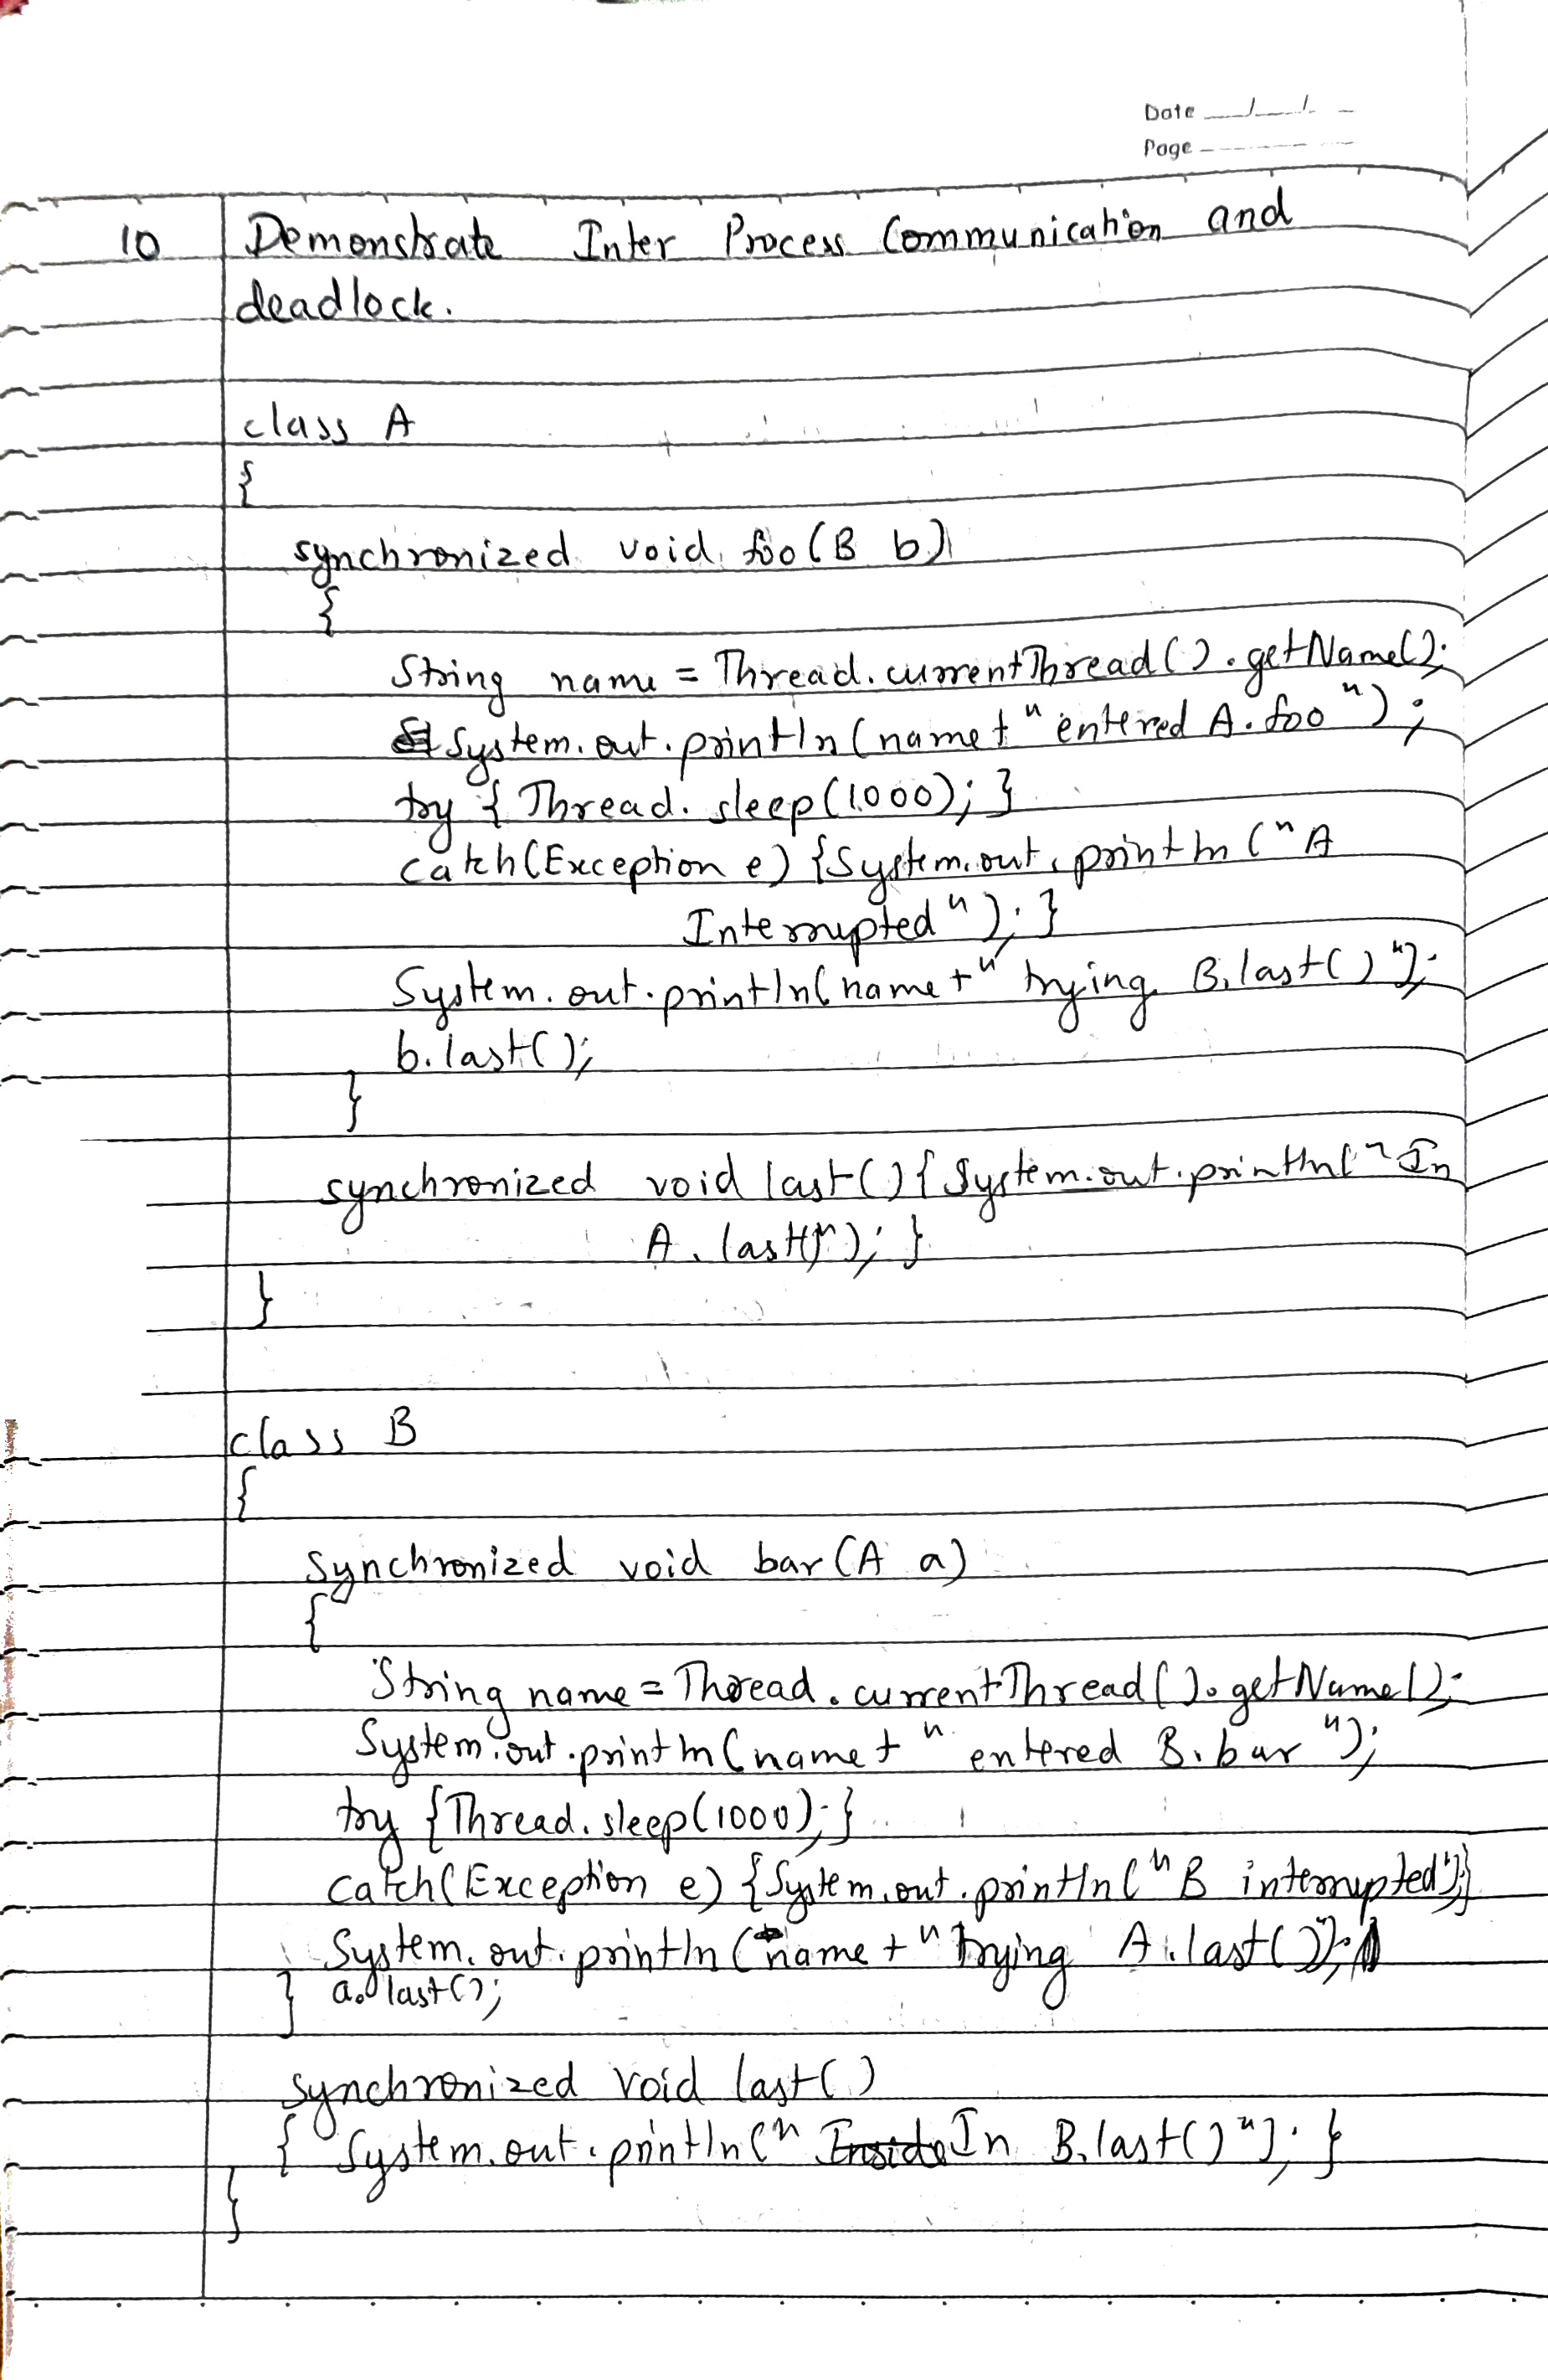 Date __/__/__
Page
10 Demonstrate Inter Process Communication and
deadlock.
class A
{
synchronized void foo(B b)
{
String name = Thread.currentThread().getName();
System.out.println(name+" entered A.foo");
try { Thread.sleep(1000); }
catch(Exception e) {System.out.println("A
Interrupted"); }
System.out.println(name+" trying B.last()");
b.last();
}
synchronized void last(){ System.out.println("In
A.last()"); }
}
class B
{
synchronized void bar(A a)
{
String name = Thread.currentThread().getName();
System.out.println(name+ " entered B.bar");
try {Thread.sleep(1000);}
catch(Exception e) {System.out.println("B interrupted");}
System.out.println(name+" trying A.last()");
} a.last();
synchronized void last()
{ System.out.println("In B.last()"); }
}